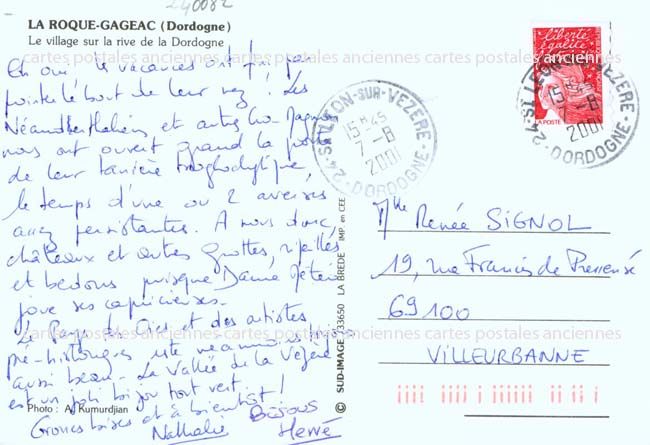 240082
LA ROQUE-GAGEAC (Dordogne)
Le village sur la rive de la Dordogne
Eh oui, les vacances ont fini par
pointer le bout de leur nez ! Les
Néanderthaliens et autres Cro-Magnon
nous ont ouvert grand la porte
de leur tanière troglodytique,
le temps d'une ou 2 averses
assez persistantes. A nous donc,
châteaux et autres grottes, ripailles
et bedons puisque Dame Météo
joue ses capricieuses.
Le Pays des Ocres et des artistes
pré-historiques reste néanmoins
aussi beau. La Vallée de la Vézère
est un joli bijou tout vert.
Grosses bises et à bientôt !
Bisous
Nathalie Hervé
Photo : A. Kumurdjian
SUD-IMAGE 33650 LA BREDE IMP. en CEE
24-ST LEON-SUR-VEZERE
15H45
7-8
2001
-DORDOGNE-
liberté
égalité
LA POSTE
24-ST LEON-SUR-VEZERE
15H45
7-8
2001
-DORDOGNE-
Mlle Renée SIGNOL
19, rue Francis de Pressensé
69100
VILLEURBANNE
cartes postales anciennes cartes postales anciennes cartes postales anciennes
cartes postales anciennes cartes postales anciennes cartes postales anciennes